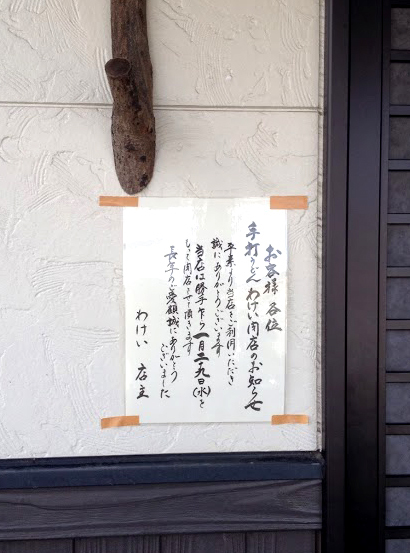 お客様各位
手打うどんわけい閉店のお知らせ
平素より当店をご利用いただき
誠にありがとうございます
当店は勝手乍ら一月二九日(水)を
もって閉店させて頂きます
長年のご愛顧誠にありがとう
ございました
わけい 店主